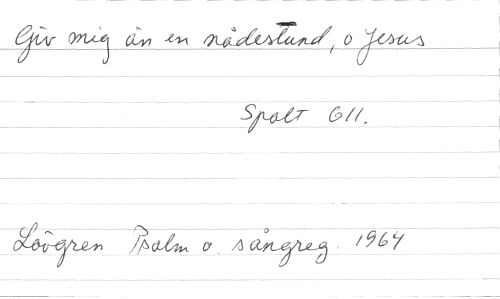 Giv mig än en nådestund, o Jesus
Spalt 611.
Lövgren Psalm o. sångreg. 1964